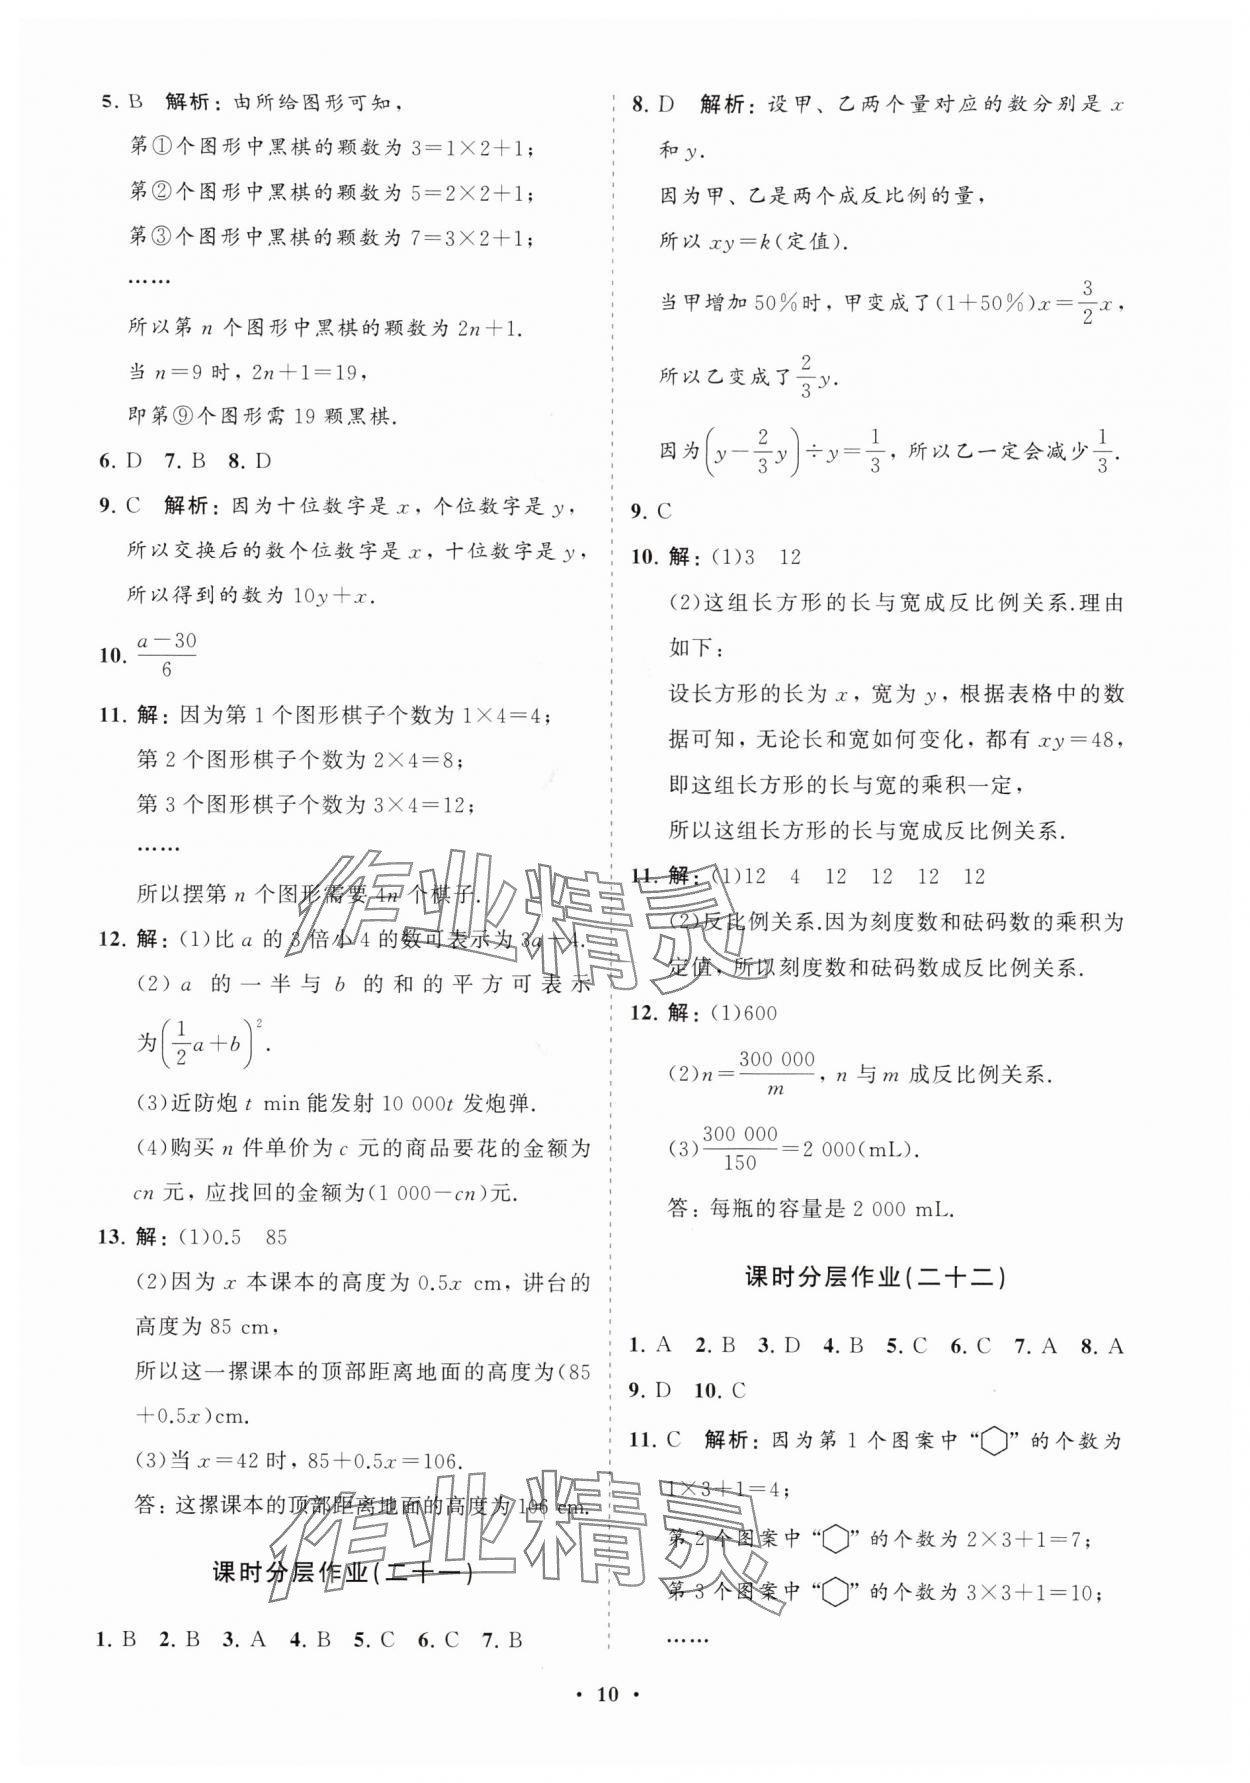 5. B 解析：由所给图形可知，
第①个图形中黑棋的颗数为 3=1×2+1；
第②个图形中黑棋的颗数为 5=2×2+1；
第③个图形中黑棋的颗数为 7=3×2+1；
……
所以第 n 个图形中黑棋的颗数为 2n+1.
当 n=9 时，2n+1=19，
即第⑨个图形需 19 颗黑棋.
6. D 7. B 8. D
9. C 解析：因为十位数字是 x，个位数字是 y，
所以交换后的数个位数字是 x，十位数字是 y，
所以得到的数为 10y+x.
10. \frac{a-30}{6}
11. 解：因为第 1 个图形棋子个数为 1×4=4；
第 2 个图形棋子个数为 2×4=8；
第 3 个图形棋子个数为 3×4=12；
……
所以摆第 n 个图形需要 4n 个棋子.
12. 解：(1)比 a 的 3 倍小 4 的数可表示为 3a-4.
(2) a 的一半与 b 的和的平方可表示
为(\frac{1}{2}a+b)².
(3)近防炮 t min能发射 10 000t 发炮弹.
(4)购买 n 件单价为 c 元的商品要花的金额为
cn 元，应找回的金额为(1 000-cn)元.
13. 解：(1)0.5 85
(2)因为 x 本课本的高度为 0.5x cm，讲台的
高度为 85 cm，
所以这一摞课本的顶部距离地面的高度为(85
+0.5x)cm.
(3)当 x=42 时，85+0.5x=106.
答：这摞课本的顶部距离地面的高度为 106 cm.
课时分层作业(二十一)
1. B 2. B 3. A 4. B 5. C 6. C 7. B
8. D 解析：设甲、乙两个量对应的数分别是 x
和 y.
因为甲、乙是两个成反比例的量，
所以 xy=k(定值).
当甲增加 50%时，甲变成了(1+50%)x=\frac{3}{2}x，
所以乙变成了\frac{2}{3}y.
因为(y-\frac{2}{3}y)÷y=\frac{1}{3}，所以乙一定会减少\frac{1}{3}.
9. C
10. 解：(1)3 12
(2)这组长方形的长与宽成反比例关系.理由
如下：
设长方形的长为 x，宽为 y，根据表格中的数
据可知，无论长和宽如何变化，都有 xy=48，
即这组长方形的长与宽的乘积一定，
所以这组长方形的长与宽成反比例关系.
11. 解：(1)12 4 12 12 12 12
(2)反比例关系.因为刻度数和砝码数的乘积为
定值，所以刻度数和砝码数成反比例关系.
12. 解：(1)600
(2)n=\frac{300 000}{m}，n 与 m 成反比例关系.
(3)\frac{300 000}{150}=2 000(mL).
答：每瓶的容量是 2 000 mL.
课时分层作业(二十二)
1. A 2. B 3. D 4. B 5. C 6. C 7. A 8. A
9. D 10. C
11. C 解析：因为第 1 个图案中“⬡”的个数为
1×3+1=4；
第 2 个图案中“⬡”的个数为 2×3+1=7；
第 3 个图案中“⬡”的个数为 3×3+1=10；
……
· 10 ·
作业精灵
作业精灵